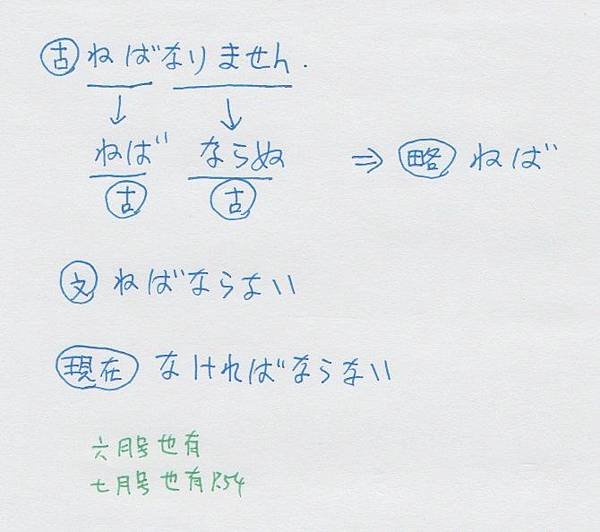 古 ねばなりません.
ねば ならぬ ⇒ 略 ねば
古 古
文 ねばならない
現在 なければならない
六月号也有
七月号也有P.54